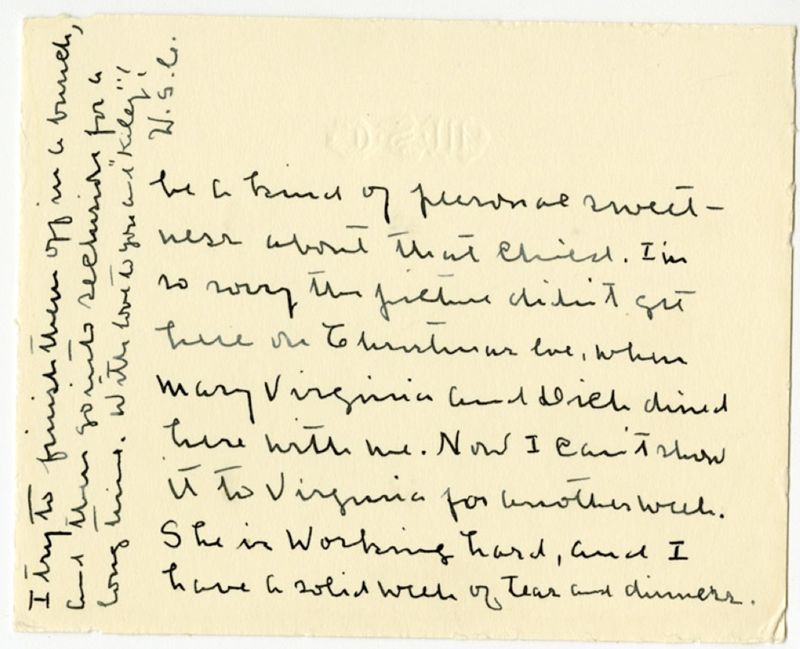 be a kind of personal sweet-
ness about that child. I'm
so sorry the picture didn't get
here on Christmas Eve, when
Mary Virginia and Dick dined
here with me. Now I can't show
it to Virginia for another week.
She is working hard, and I
have a solid week of teas and dinners.
I try to finish them off in a bunch,
and then go into seclusion for a
long time. With love to you and "Kiley",
W. S. C.